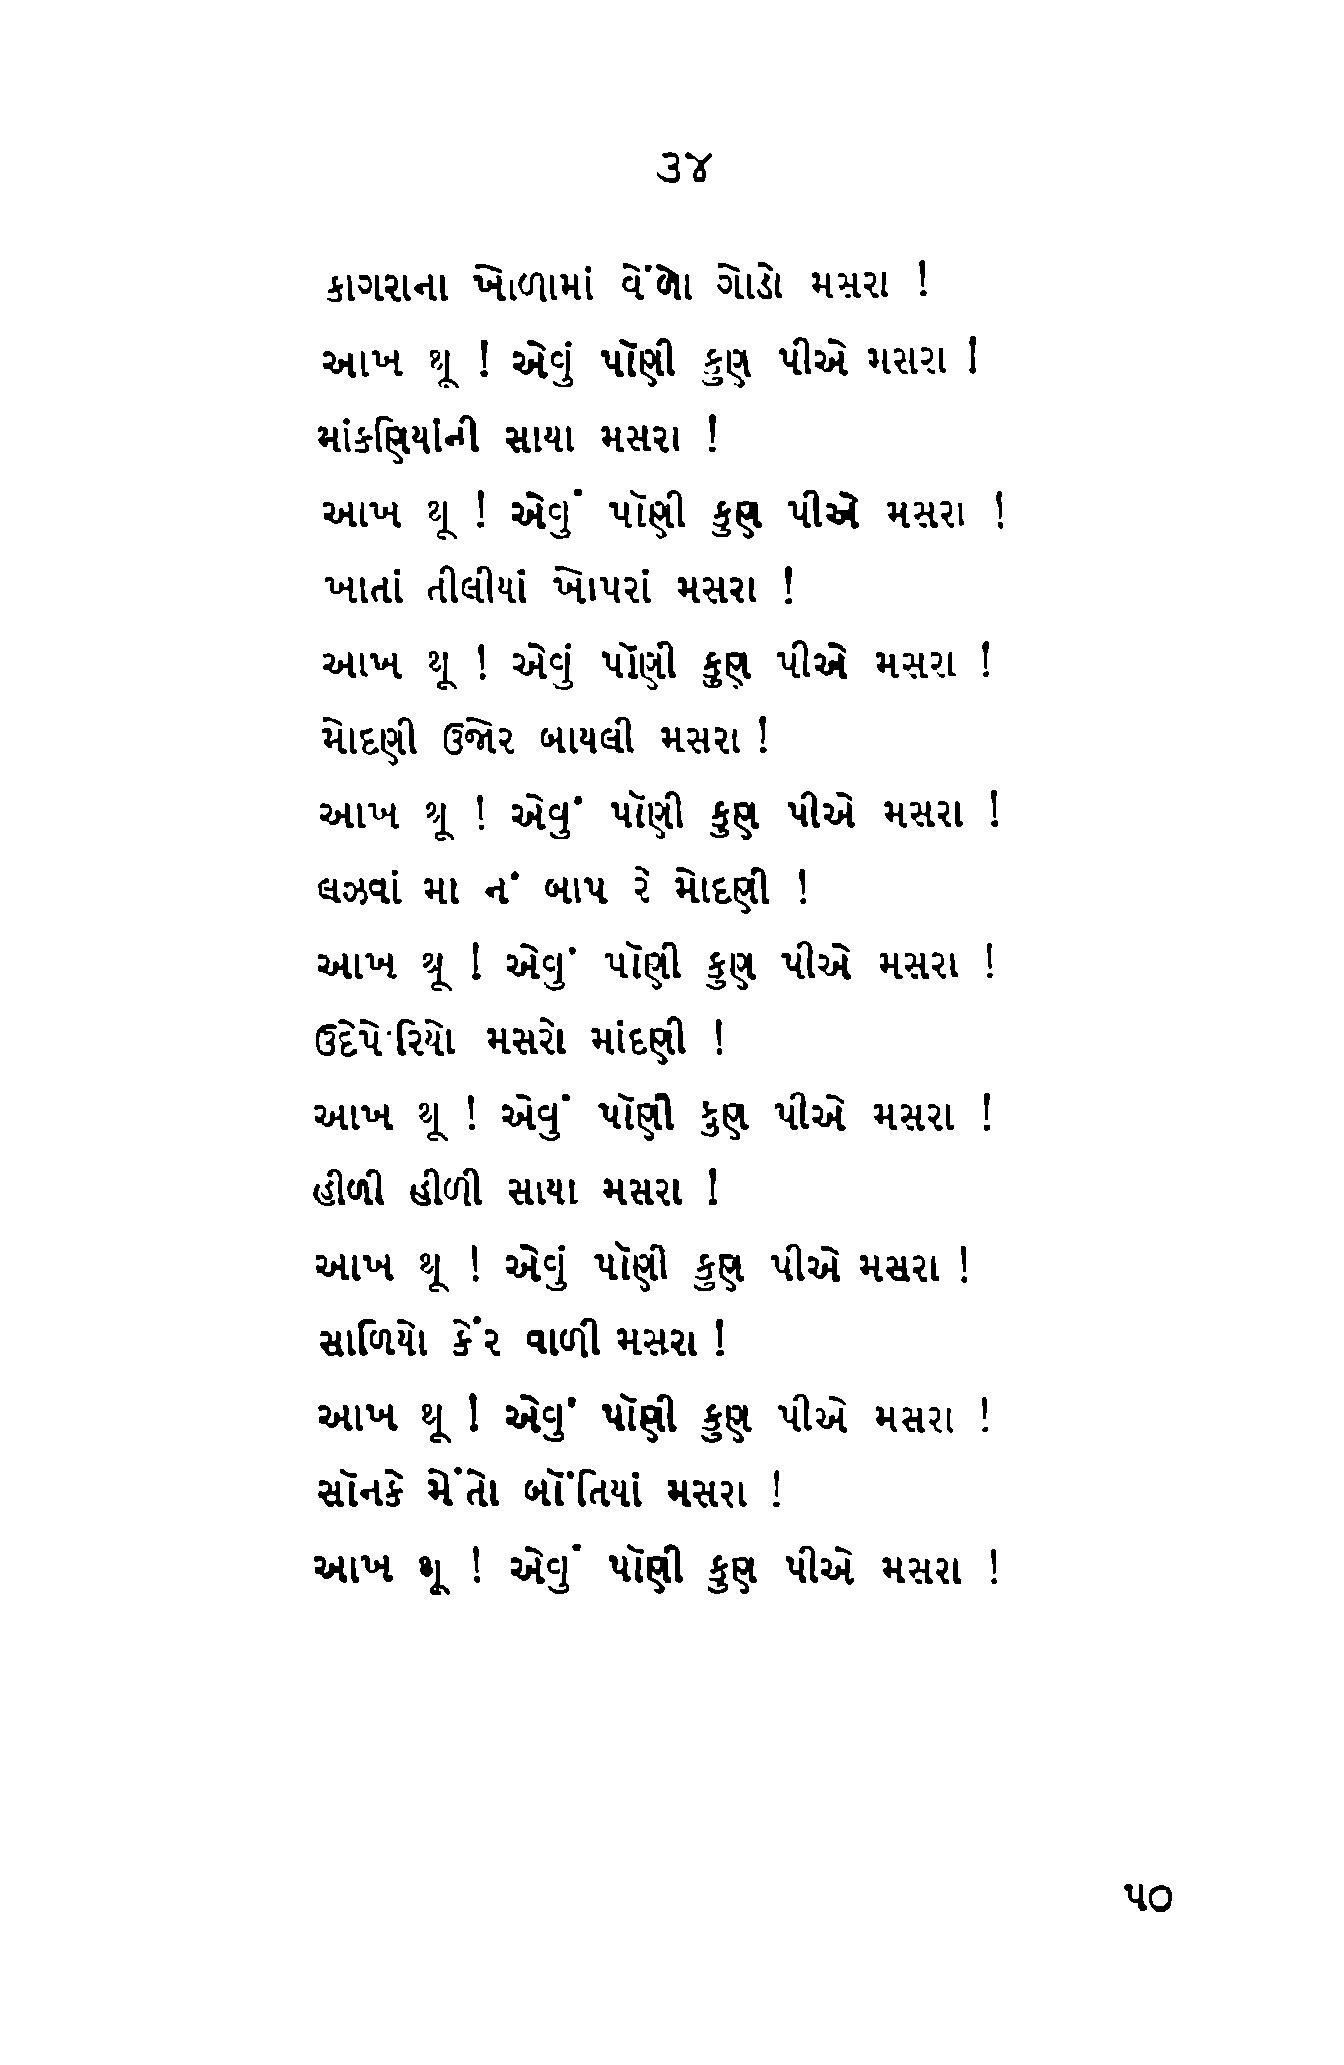 ૩૪
કાગરાના ખોળામાં વેંળો ગોડો મસરા !
આખ થૂ ! એવું પૉણી કુણ પીએ મસરા !
માંકણિયાંની સાયા મસરા !
આખ થૂ ! એવું પૉણી કુણ પીએ મસરા !
ખાતાં તીલીયાં ખોપરાં મસરા !
આખ થૂ ! એવું પૉણી કુણ પીએ મસરા !
મોદણી ઉજોર બાયલી મસરા !
આખ થૂ ! એવું પૉણી કુણ પીએ મસરા !
લઝવાં મા નં બાપ રે મોદણી !
આખ થૂ ! એવું પૉણી કુણ પીએ મસરા !
ઉદેપેરિયો મસરો માંદણી !
આખ થૂ ! એવું પૉણી કુણ પીએ મસરા !
હીળી હીળી સાયા મસરા !
આખ થૂ ! એવું પૉણી કુણ પીએ મસરા !
સાળિયો કેંર વાળી મસરા !
આખ થૂ ! એવું પૉણી કુણ પીએ મસરા !
સૉનકે મેંતો બૉંતિયાં મસરા !
આખ થૂ ! એવું પૉણી કુણ પીએ મસરા !
૫૦